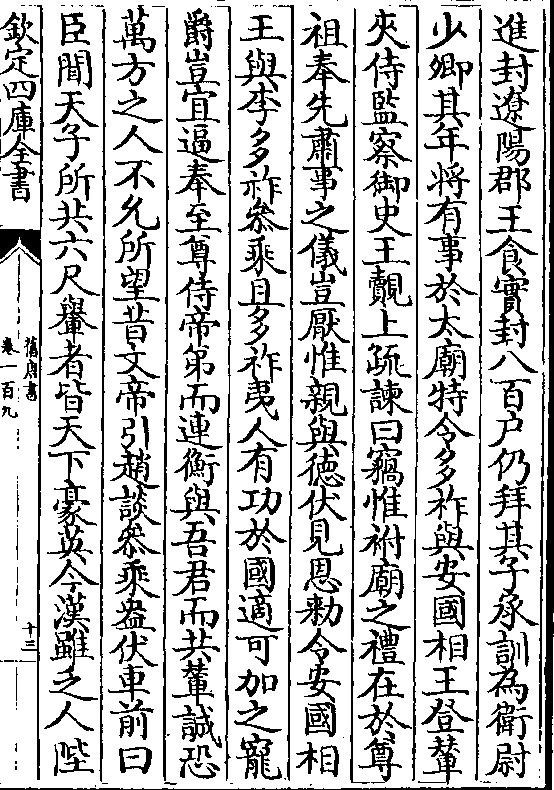 進封遼陽郡王食實封八百户仍拜其子承訓為衛尉
少卿其年將有事於太廟特令多祚與安國相王登輦
夾侍監察御史王覿上疏諫曰竊惟祔廟之禮在於尊
祖奉先肅事之儀豈厭惟親與徳伏見恩勅令安國相
王與李多祚叅乘且多祚夷人有功於國適可加之寵
爵豈宜逼奉至尊侍帝弟而連衡與吾君而共輦誠恐
萬方之人不允所望昔文帝引趙談叅乘盎伏車前曰
臣聞天子所共六尺轝者皆天下豪英今漢雖乏人陛
欽定四庫全書
舊唐書
卷一百九
十三